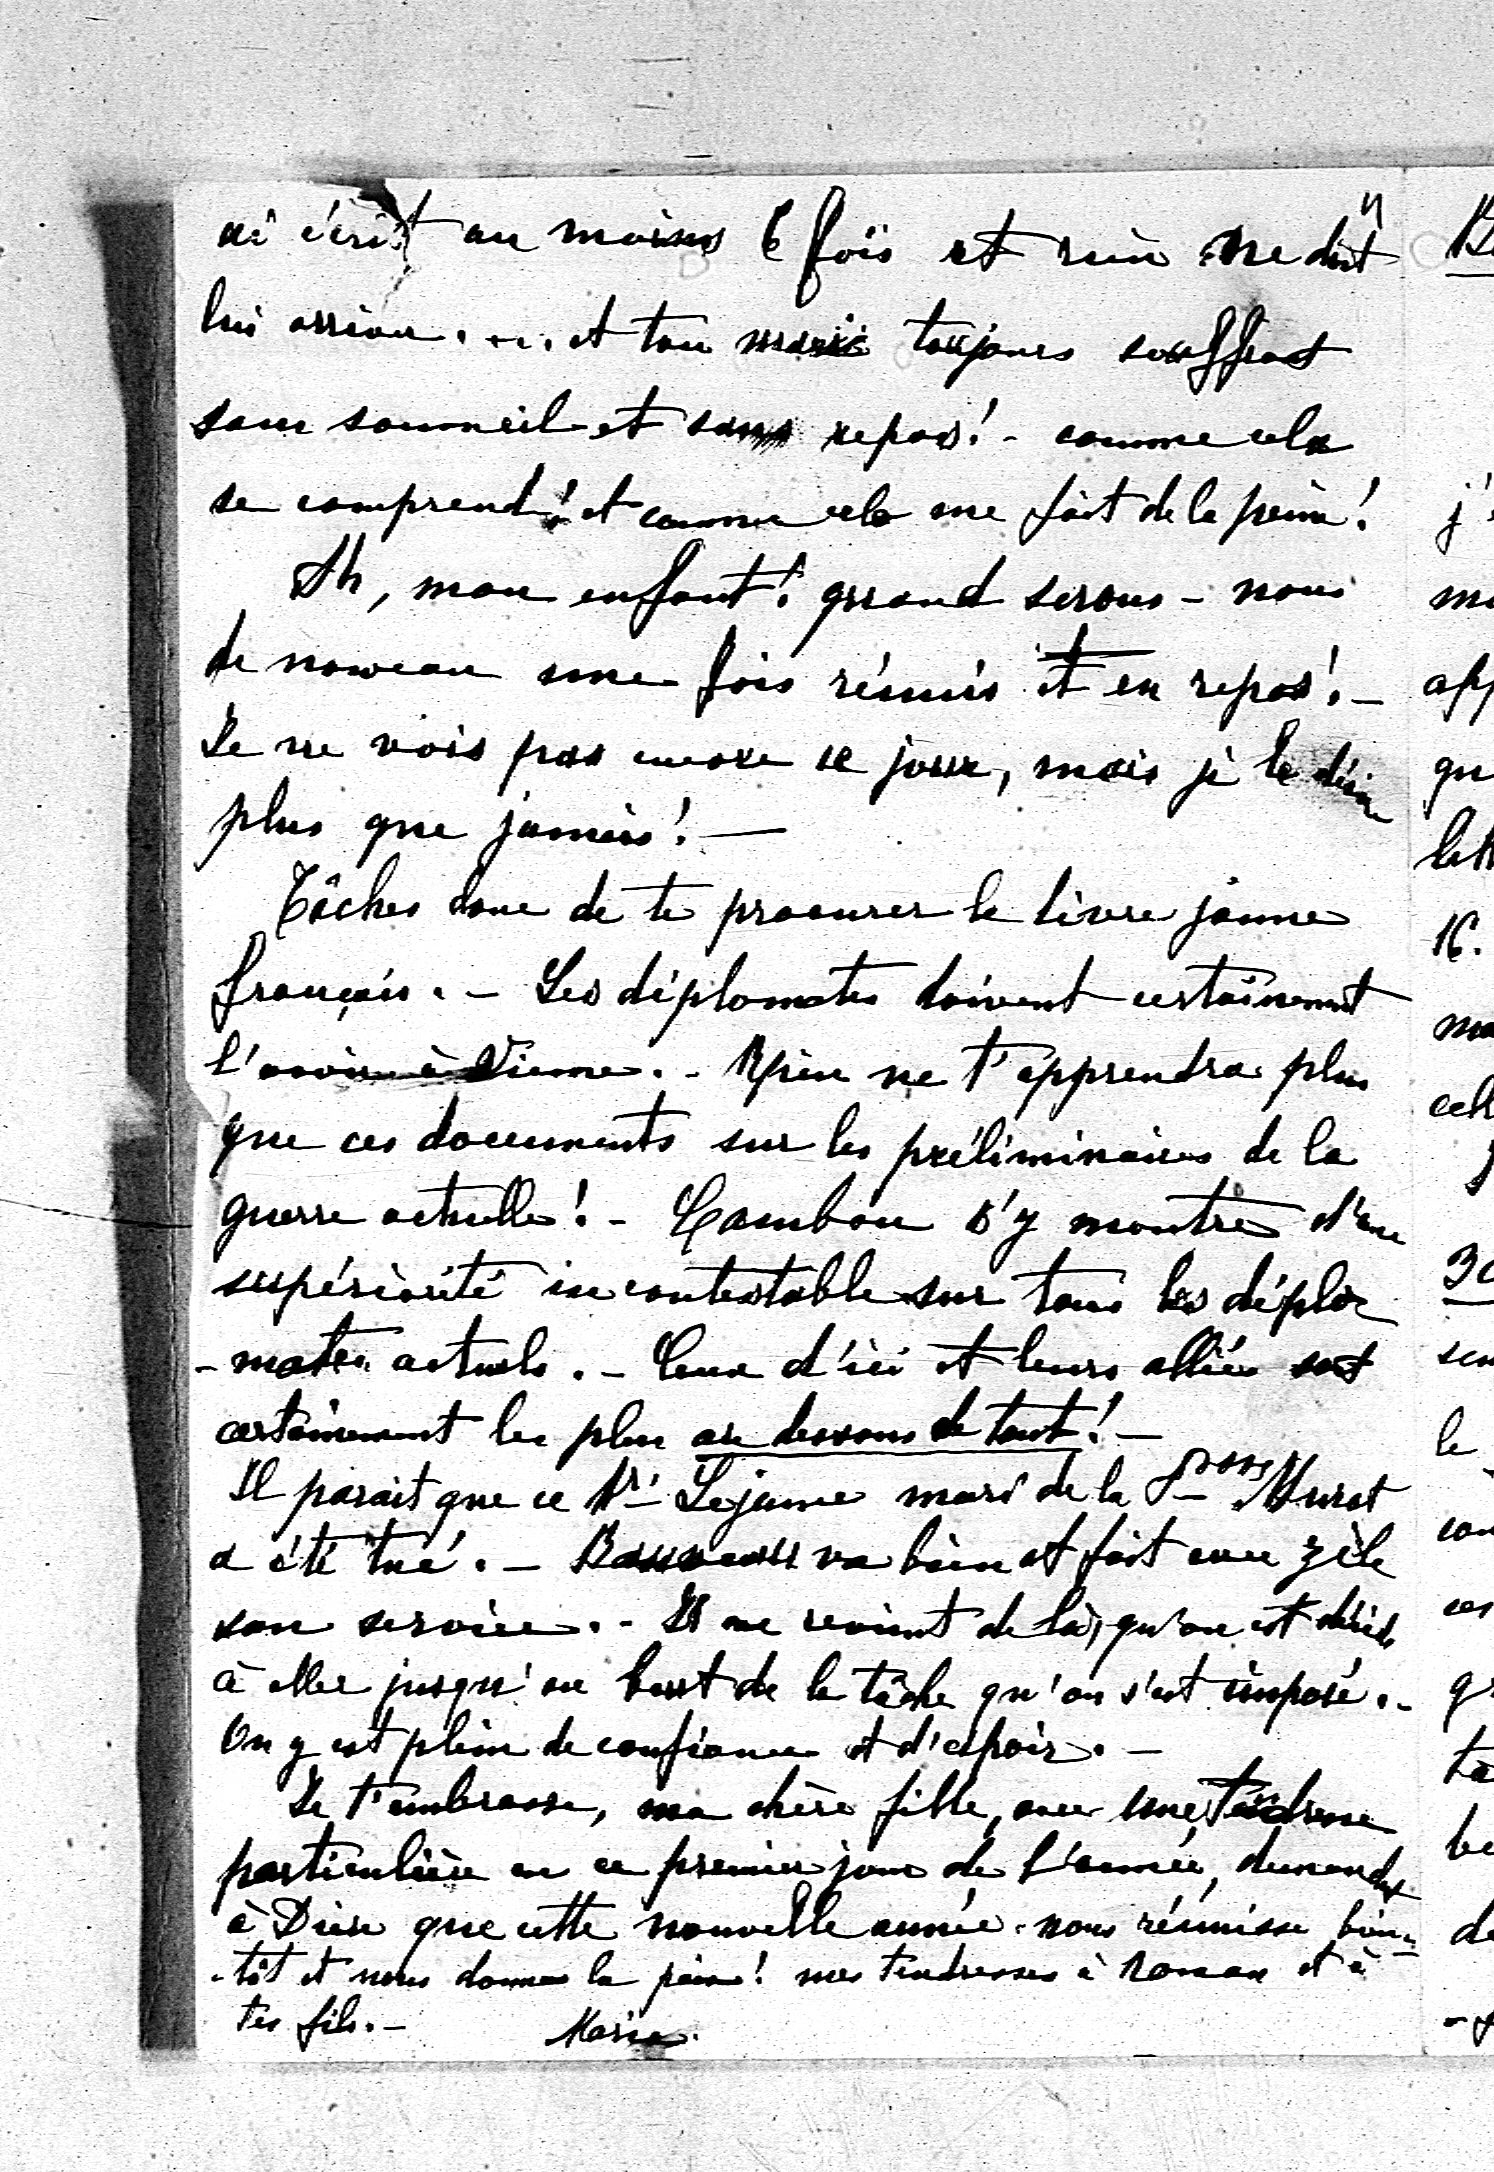 ai écrit au moins 6 fois et rien ne doit
lui arriver. ... et ton mari toujours souffrant
sans sommeil et sans repos! - comme cela
se comprend! et comme cela me fait de la peine!
Ah, mon enfant! quand serons-nous
de nouveau une fois réunis et en repos! -
Je ne vois pas encore ce jour, mais je le désire
plus que jamais! -
Tâches donc de te procurer le livre jaune
français. - Les diplomates doivent certainement
l'avoir à Vienne. - Rien ne t'apprendra plus
que ces documents sur les préliminaires de la
guerre actuelle! - Cambon s'y montre d'une
supériorité incontestable sur tous les diplo
-mates actuels. - Ceux d'ici et leurs alliés sont
certainement les plus au dessous de tout! -
Il parait que ce Mr Lejeune mari de la Psse Murat
a été tué. - va bien et fait avec zèle
son service. - Il me revient de là, qu'on est décidé
à aller jusqu'au bout de la tâche qu'on s'est imposé. -
On y est plein de confiance et d'espoir. -
Je t'embrasse, ma chère fille, avec une tendresse
particulière en ce premier jour de l'année, demandant
à Dieu que cette nouvelle année nous réunisse bien-
-tôt et nous donne la paix! mes tendresses à Roman et à
tes fils. - Marie.